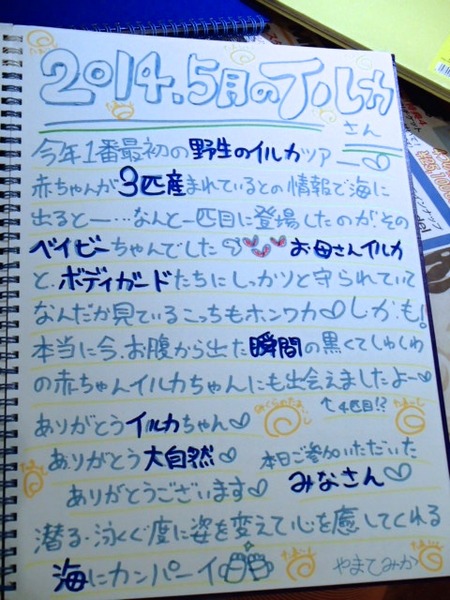 2014.5月のイルカ
さん
今年1番最初の野生のイルカツアー♡
赤ちゃんが3匹産まれているとの情報で海に
出ると―…なんと一匹目に登場したのが、その
ベイビーちゃんでした お母さんイルカ
と、ボディガードたちにしっかりと守られていて
なんだか見ているこっちもホンワカ♡しかも!
本当に今、お腹から出た瞬間の黒くてしわしわ
の赤ちゃんイルカちゃんにも出会えましたよー♡
↑4匹目!?
ありがとうイルカちゃん♡
ありがとう大自然♡ 本日ご参加いただいた
ありがとうございます♡ みなさん♡
潜る・泳ぐ度に姿を変えて心を癒してくれる
海にカンパーイ
やまてみか